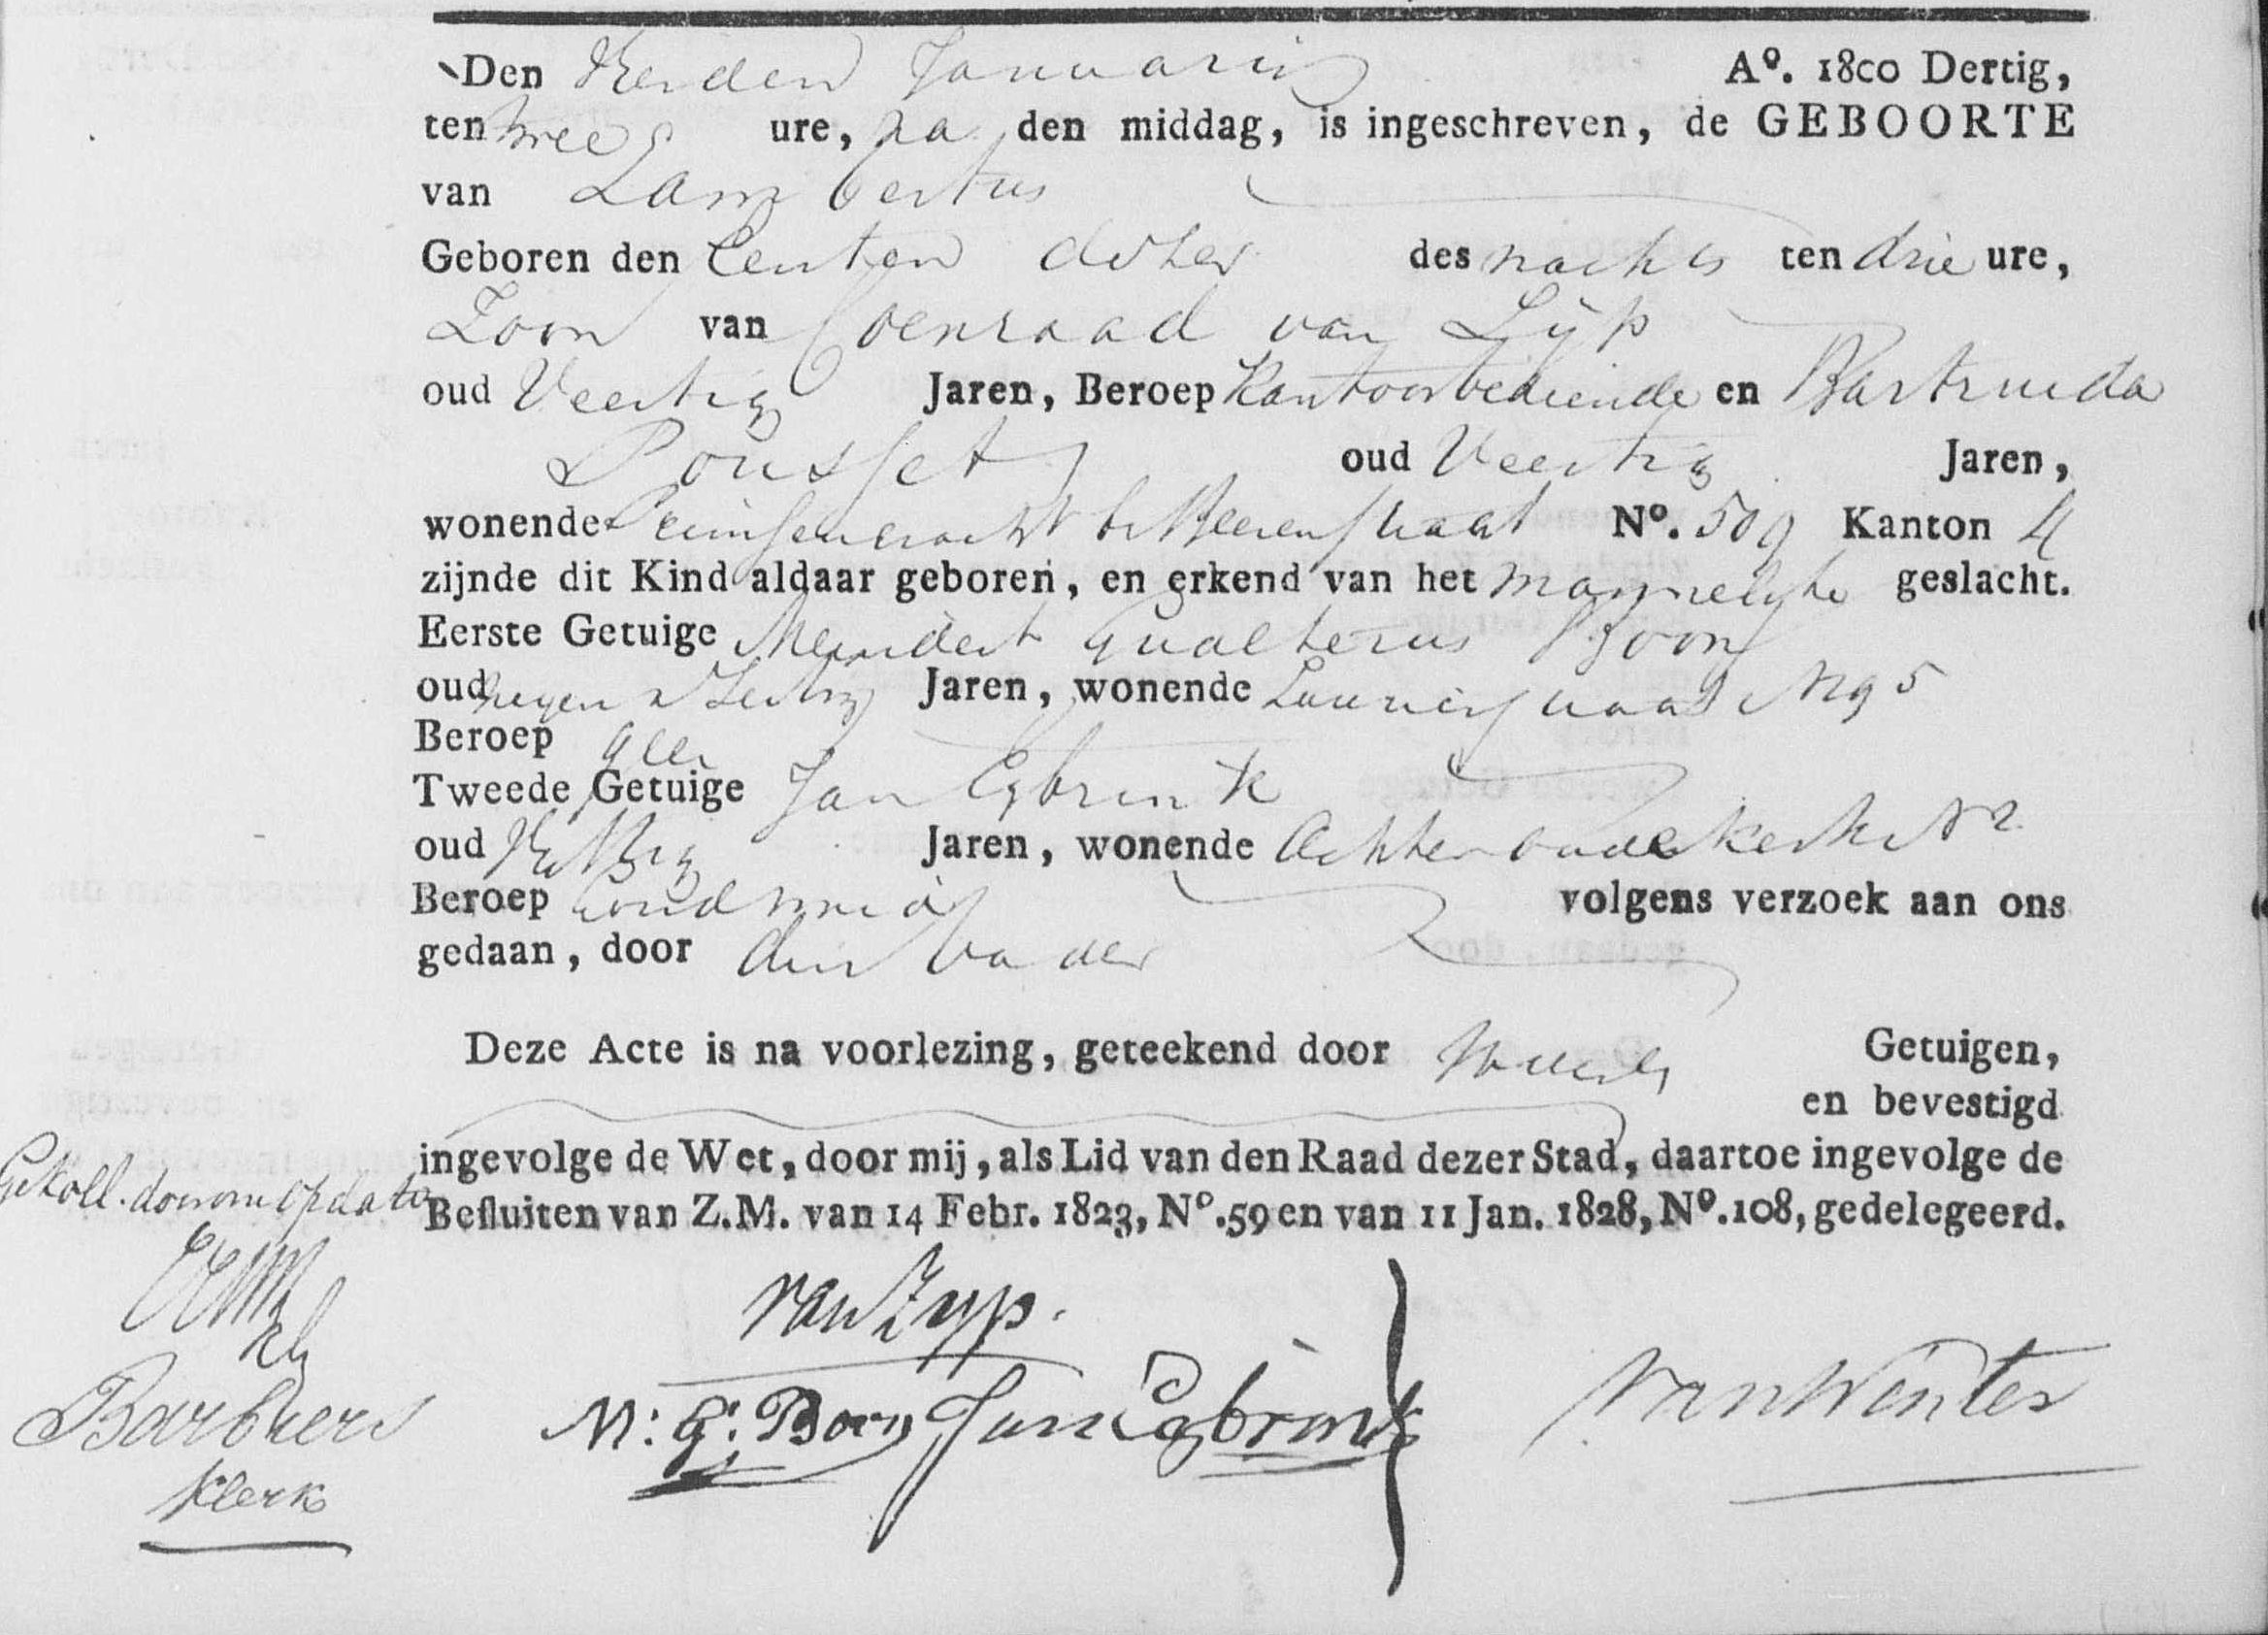 Den Verden Januarij Aº. 1800 Dertig,
ten twee ure, na den middag, is ingeschreven, de GEBOORTE
van Lambertus
Geboren den Eersten dezer des nachts ten drie ure,
Zoon van Coenraad van Zijp
oud Veertig Jaren, Beroep Kantoorbediende en Bartruida
Pousset oud Veertig Jaren,
wonende Prinsengracht bij Beerenstraat Nº. 509 Kanton 4
zijnde dit Kind aldaar geboren, en erkend van het mannelijke geslacht.
Eerste Getuige Meindert Gualterus Boon
oud negen Jaren, wonende Laurierstraat N 95
Beroep
Tweede Getuige Jan Egbrink
oud Jaren, wonende Achter oudekerk N 2
Beroep goudsmid volgens verzoek aan ons
gedaan, door den Vader
Deze Acte is na voorlezing, geteekend door Getuigen,
en bevestigd
ingevolge de Wet, door mij, als Lid van den Raad dezer Stad, daartoe ingevolge de
Gekoll. door on op dato
Besluiten van Z.M. van 14 Febr. 1823, Nº. 59 en van 11 Jan. 1828, Nº. 108, gedelegeerd.
van Zyp.
M: G: Boon Jan Egbrink
van Winter
Barbiers
Klerk